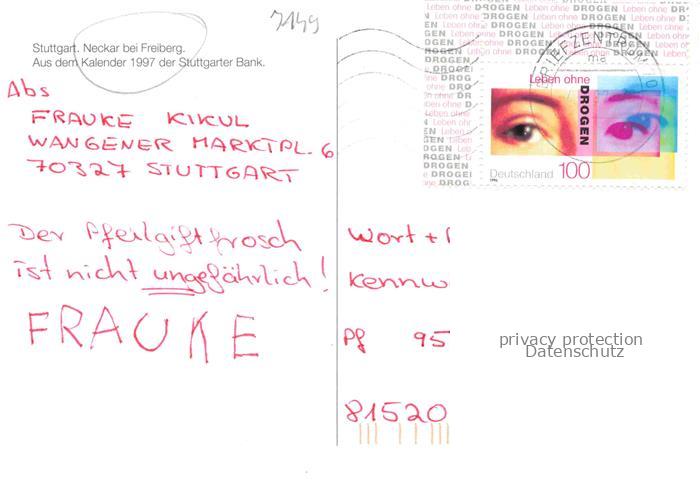 7149
Stuttgart. Neckar bei Freiberg.
Aus dem Kalender 1997 der Stuttgarter Bank.
Abs
FRAUKE KIKUL
WANGENER MARKTPL. 6
70327 STUTTGART
Der Pfeilgiftfrosch
ist nicht ungefährlich!
FRAUKE
Leben ohne
DROGEN
Deutschland 100
BRIEFZENTRUM
Wort +
Kennw
Pf 95
81520
privacy protection
Datenschutz